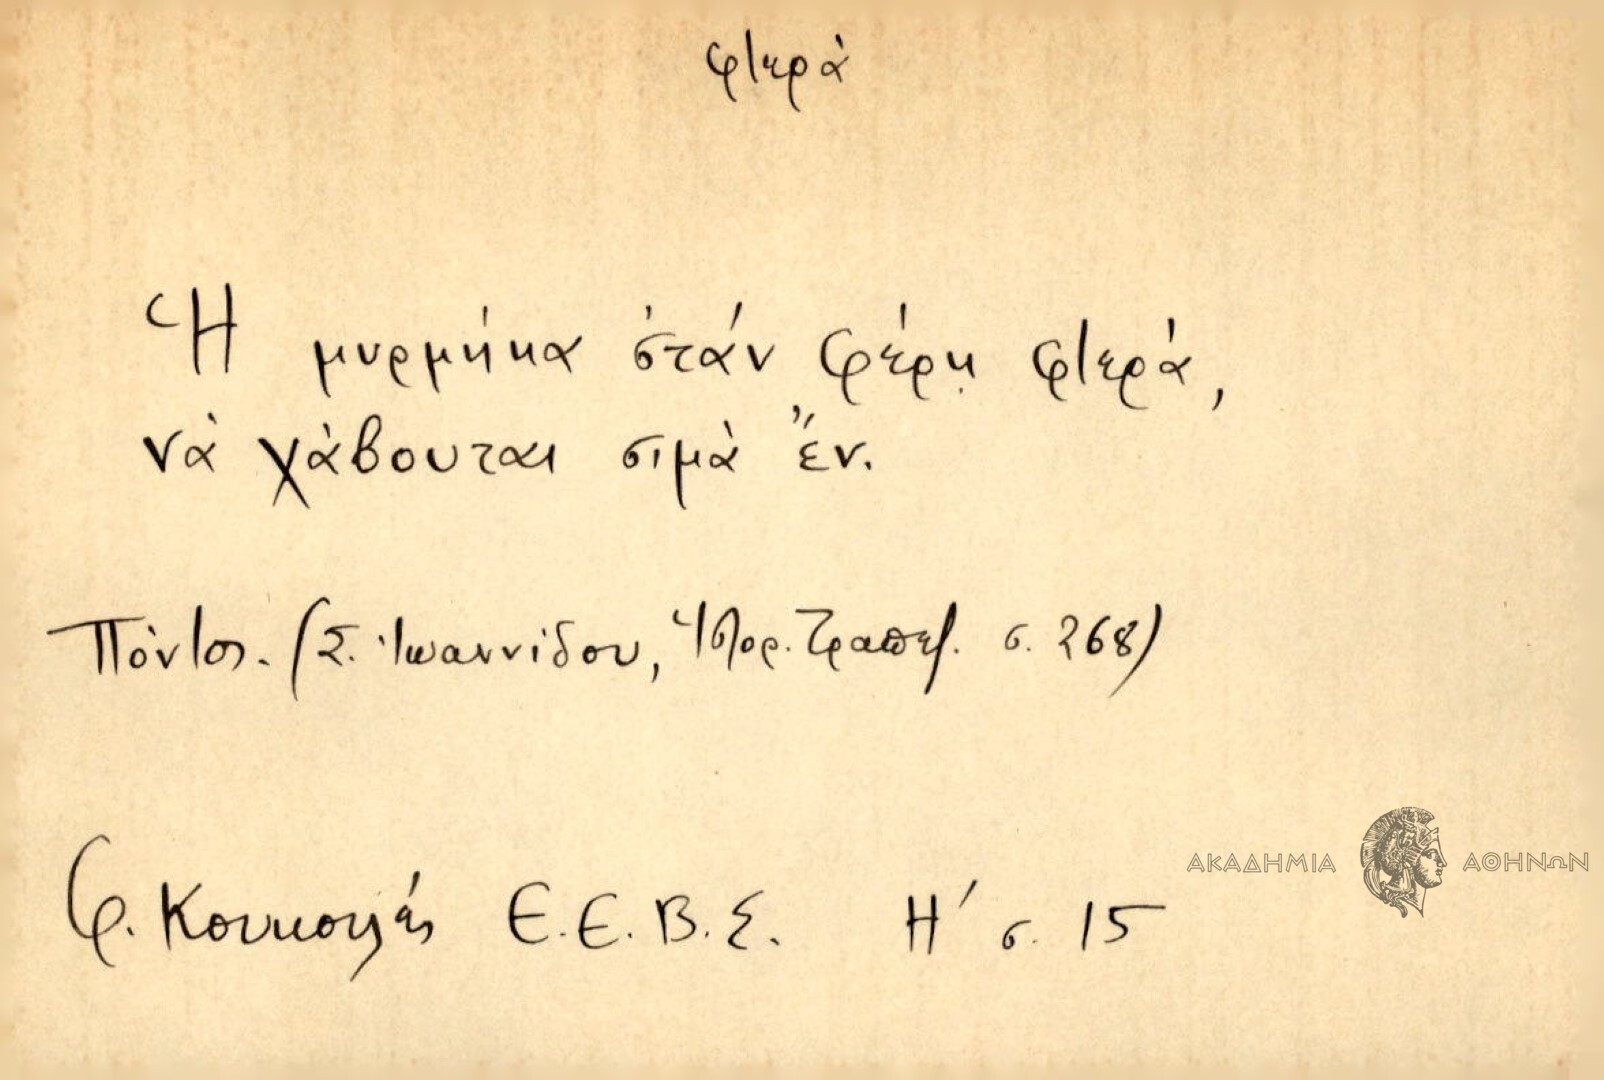 φτερά
Ἡ μυρμήκα ὁτάν φέρῃ φτερά,
νὰ χάβουται σιμὰ ἔν.
Πόντος. (Σ. Ἰωαννίδου, Ἱστορ. Τραπεζ. σ. 268)
ΑΚΑΔΗΜΙΑ ΑΘΗΝΩΝ
Φ. Κουκουλές Ε.Ε.Β.Σ. Η΄ σ. 15